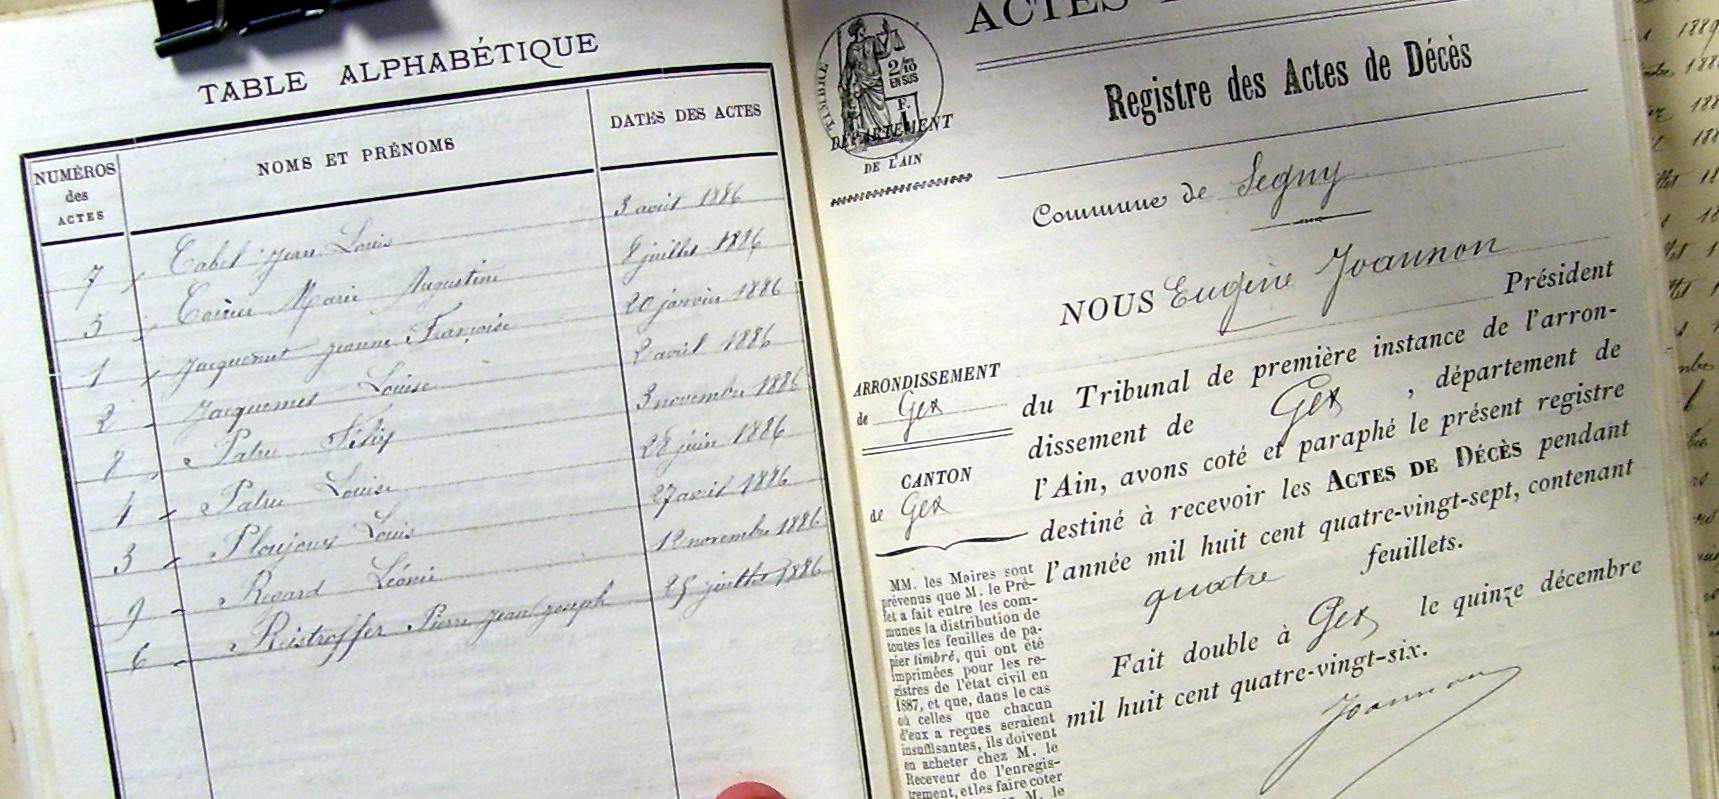 TABLE ALPHABÉTIQUE
NUMÉROS des ACTES
NOMS ET PRÉNOMS
DATES DES ACTES
7 Jean Louis 3 août 1886
5 Marie Augustine 8 juillet 1886
1 Jacquemet Jeanne Françoise 20 janvier 1886
2 Jacquemet Louise 2 avril 1886
8 Patru Félix 3 novembre 1886
4 Patru Louise 28 juin 1886
3 Ploujoux Louis 27 avril 1886
9 Regard Léonie 12 novembre 1886
6 Reistroffer Pierre Jean Joseph 25 juillet 1886
ACTES
TIMBRE
2/10
EN SUS
F.
DÉPARTEMENT
DE L'AIN
Registre des Actes de Décès
Commune de Segny
NOUS Eugène Joannon
Président
ARRONDISSEMENT
de Gex
CANTON
de Gex
du Tribunal de première instance de l'arron-
dissement de Gex, département de
l'Ain, avons coté et paraphé le présent registre
destiné à recevoir les ACTES DE DÉCÈS pendant
l'année mil huit cent quatre-vingt-sept, contenant
quatre feuillets.
Fait double à Gex le quinze décembre
mil huit cent quatre-vingt-six.
Joannon
MM. les Maires sont
prévenus que M. le Pré-
fet a fait entre les com-
munes la distribution de
toutes les feuilles de pa-
pier timbré, qui ont été
imprimées pour les re-
gistres de l'état civil en
1887, et que, dans le cas
où celles que chacun
d'eux a reçues seraient
insuffisantes, ils doivent
en acheter chez M. le
Receveur de l'enregis-
trement, et les faire coter
M. le